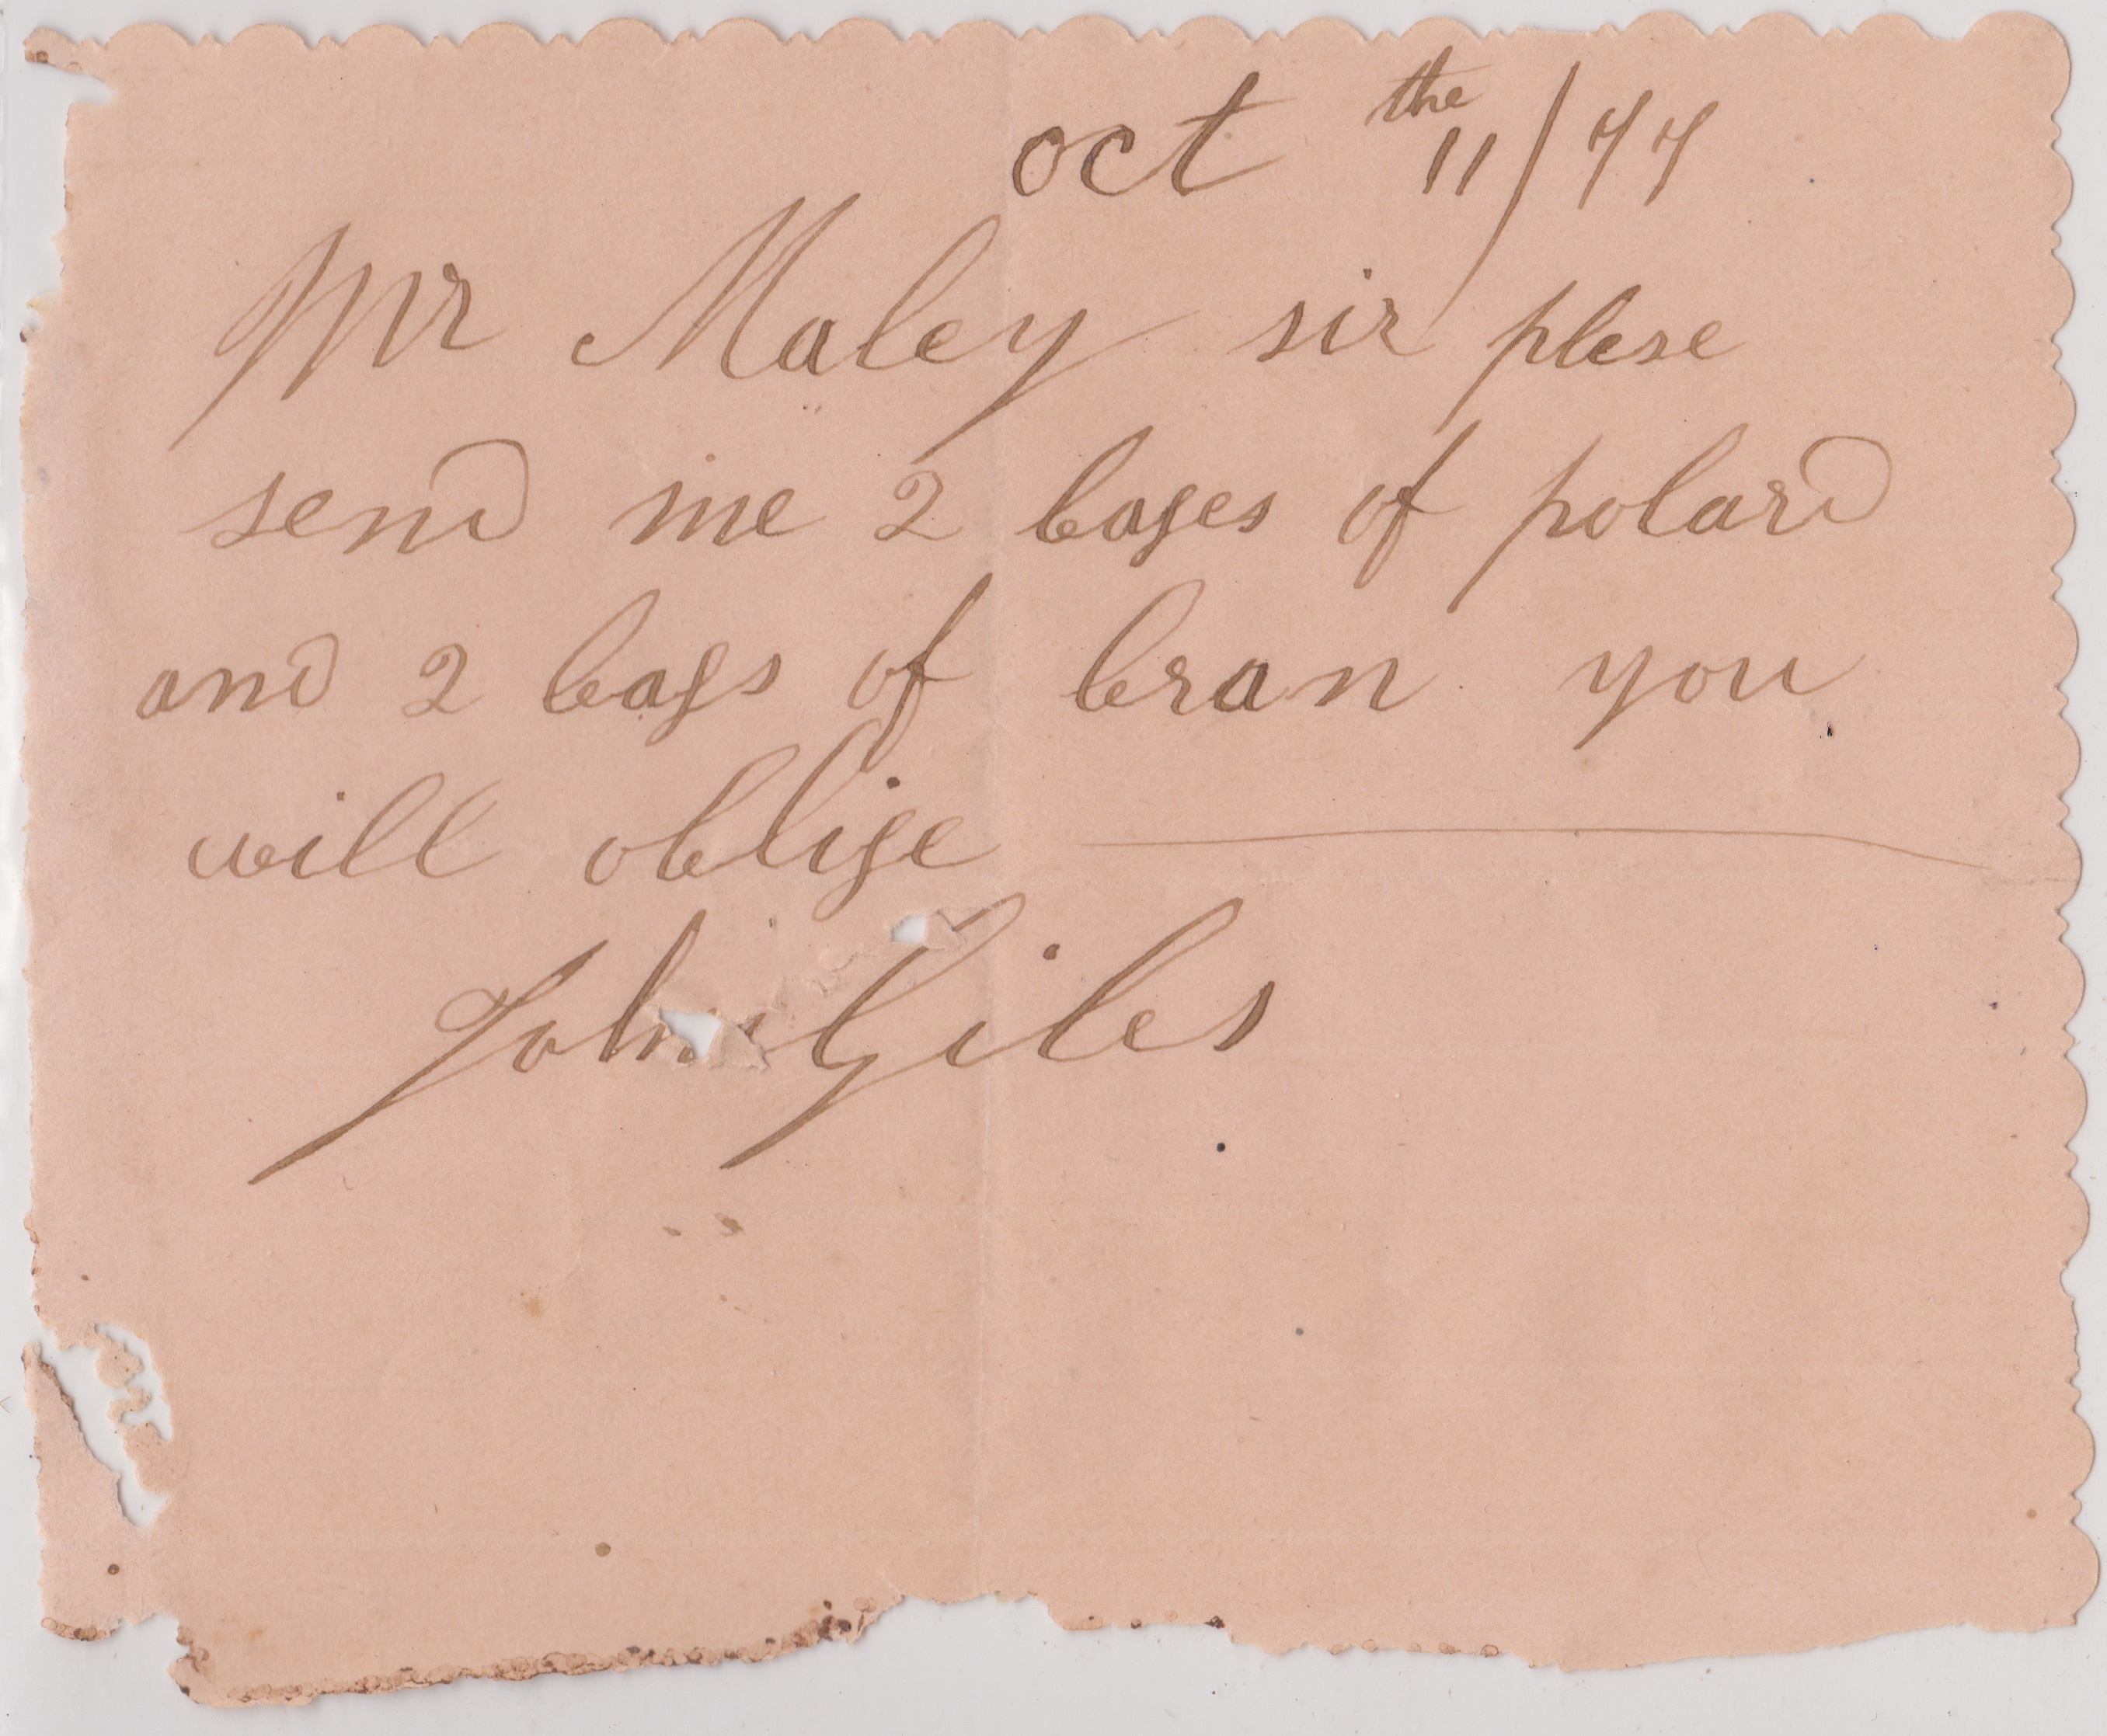 oct the 11/77
Mr Maley sir plese
send me 2 bages of polard
and 2 bags of bran you
will oblige
John Giles